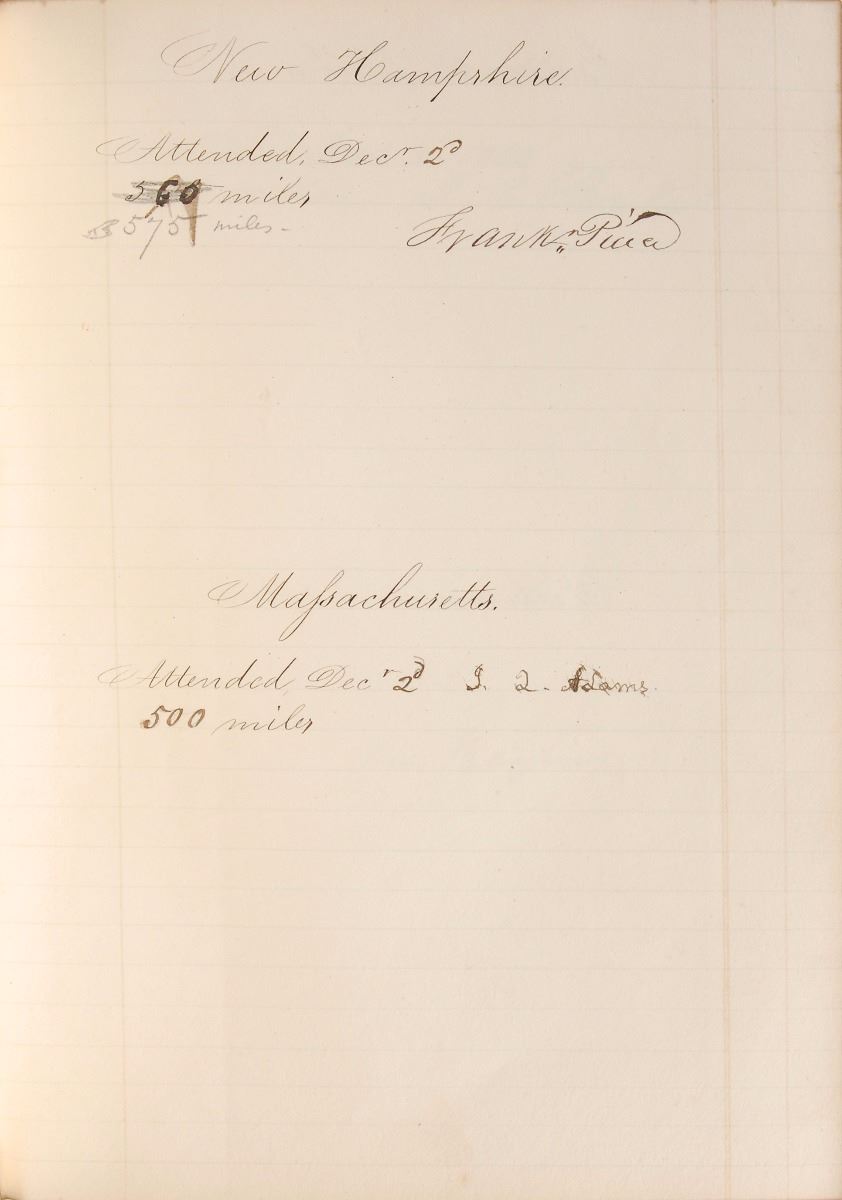 New Hampshire.
Attended, Decr. 2d
560 miles
575 miles -
Frankn Pierce
Massachusetts.
Attended, Decr 2d J. Q. Adams.
500 miles